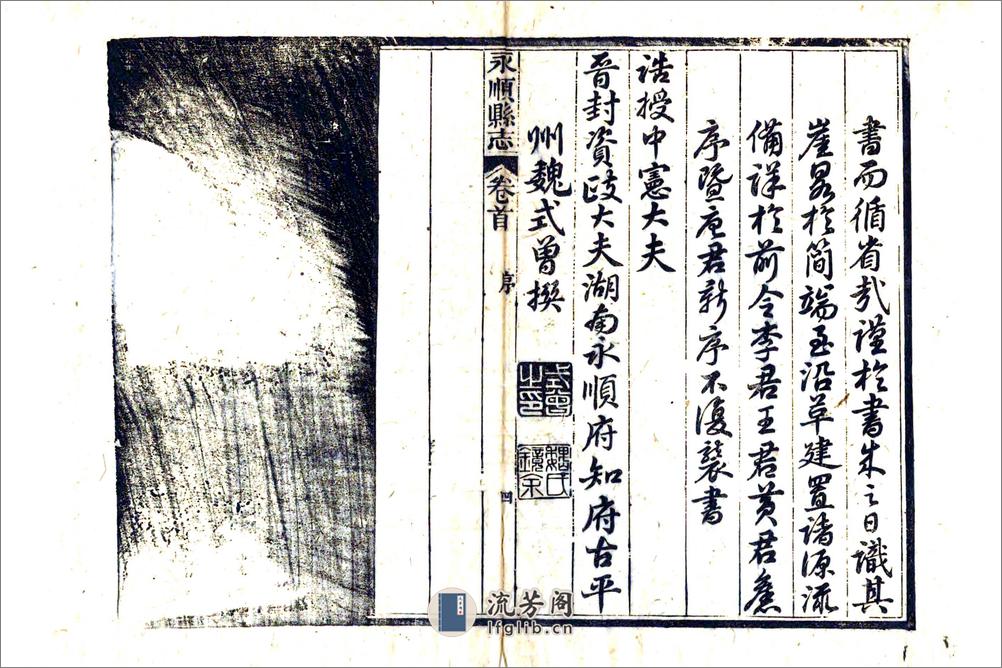 書而循省哉謹於書成之日識其
崖畧於簡端至沿革建置諸源流
備詳於前令李君王君黄君舊
序暨唐君新序不復襲書
誥授中憲大夫
晉封資政大夫湖南永順府知府古平
州魏式曾撰
式曾之印
魏氏鏡余
永順縣志 卷首 序 四
流芳阁
lfglib.cn